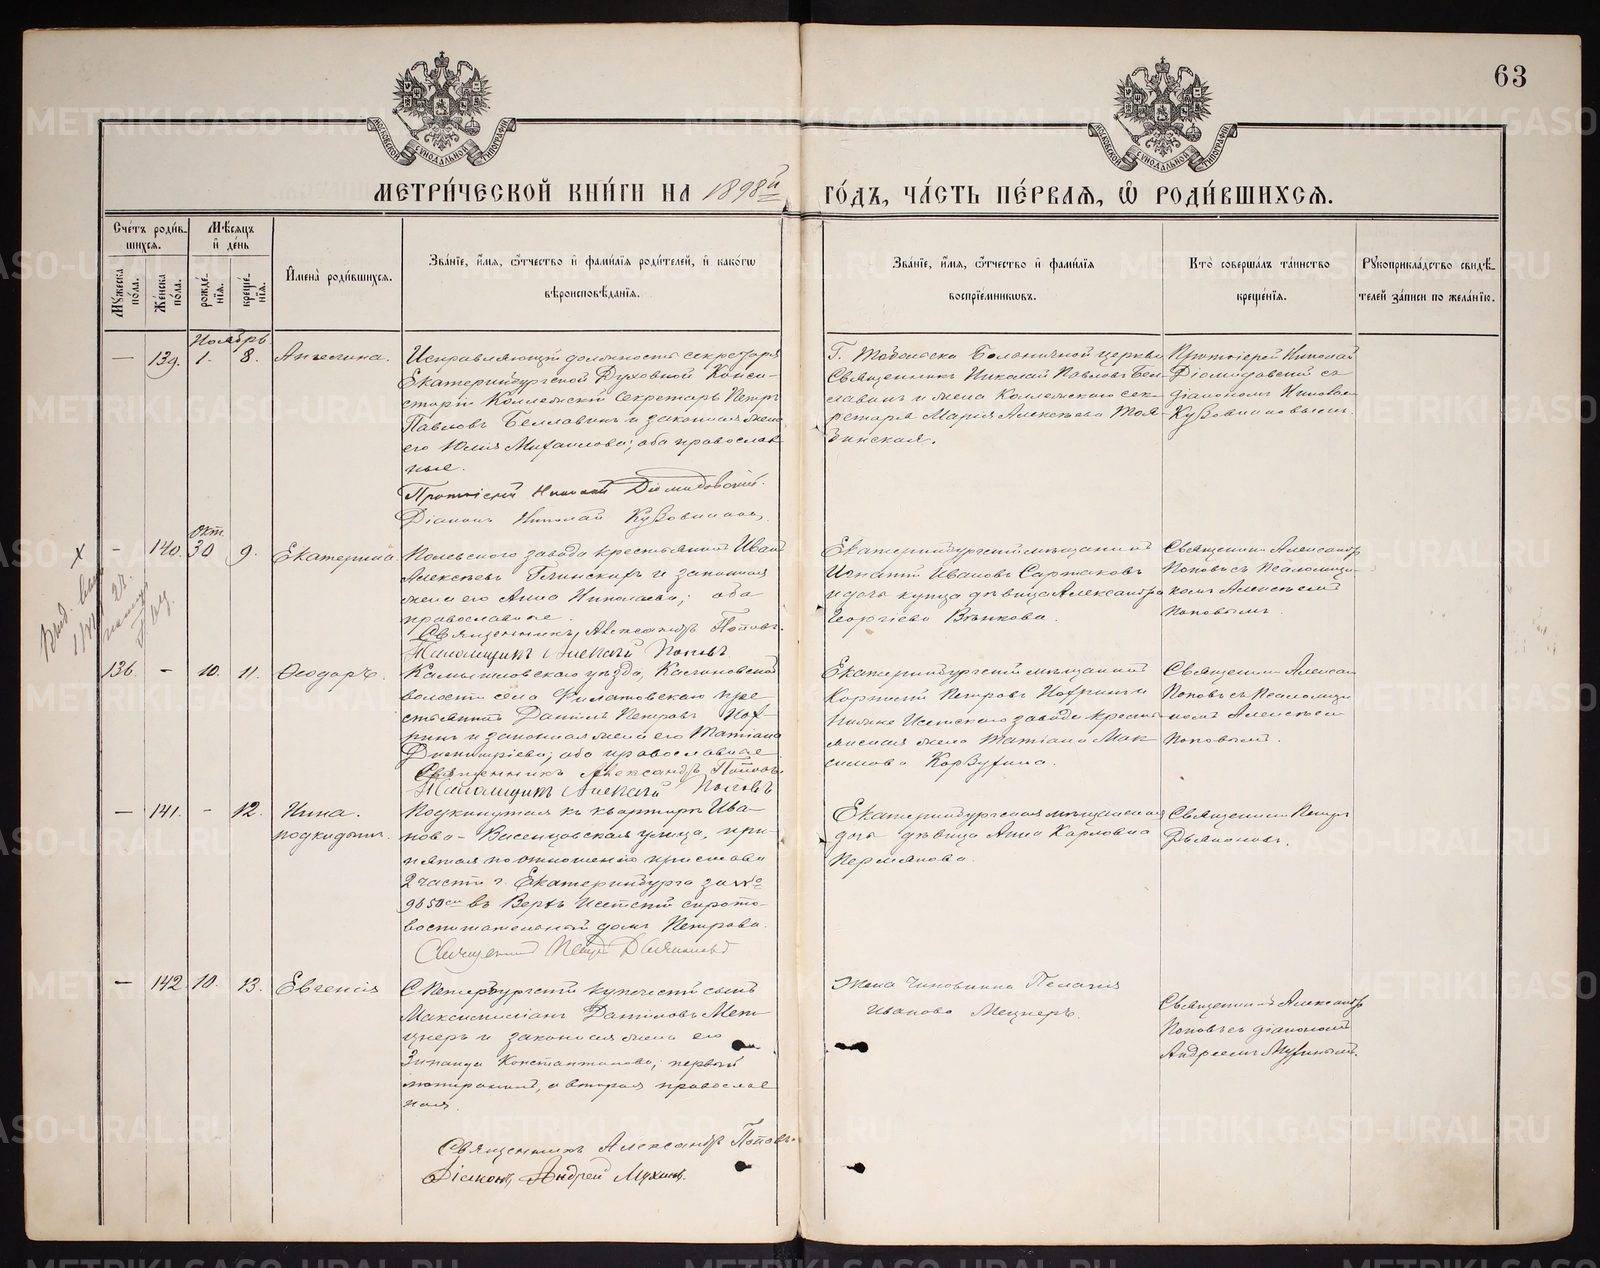 63
МОСКОВСКОЙ СѴНОДАЛЬНОЙ ТИПОГРАФІИ
МОСКОВСКОЙ СѴНОДАЛЬНОЙ ТИПОГРАФІИ
МЕТРИ́ЧЕСКОЙ КНИ́ГИ НА 1898й ГО́ДЪ, ЧА́СТЬ ПЕ́РВАЯ, Ѡ҆ РОДИ́ВШИХСЯ.
Сче́тъ роди́в-
шихся.
Мꙋжеска по́ла.
Же́нска по́ла.
Мѣ́сяцъ
и҆ де́нь
рожде́-нїя.
креще́-нїя.
И҆мена̀ роди́вшихся.
Зва́нїе, и҆́мя, ѻ҆́тчество и҆ фами́лїя роди́телей, и҆ како́гѡ
вѣроисповѣ́данїя.
Зва́нїе, и҆́мя, ѻ҆́тчество и҆ фами́лїя
воспрїе́мникѡвъ.
Кто̀ соверша́лъ та́инство
креще́нїя.
Рꙋкоприкла́дство свидѣ́-
телей за́писи по жела́нїю.
Ноябрь
— 139. 1. 8. Ангелина.
Исправляющій должность секретаря
Екатеринбургской Духовной Конси-
сторіи Коллежскій Секретарь Петръ
Павловъ Беллавинъ и законная жена
его Юлія Михаилова; оба православ-
ные.
Протоіерей Николай Діомидовскій.
Діаконъ Николай
Г. Тобольска Больничной церкви
Священникъ Николай Павловъ Бел-
лавинъ и жена Коллежскаго сек-
ретаря Марія Алексѣева
Протоіерей Николай
Діомидовскій съ
діакономъ Николаемъ
Окт.
- 140. 30 9. Екатерина
Полевского завода крестьянинъ Иванъ
Алексѣевъ Глинскихъ и законная
жена его Анна Николаева; оба
православные.
Священникъ Александръ Поповъ.
Псаломщикъ Алексѣй Поповъ
Екатеринбургскій мѣщанинъ
Игнатій Ивановъ Сартаковъ
и дочь купца дѣвица Александра
Георгіева
Священникъ Александръ
Поповъ съ Псаломщи-
комъ Алексѣемъ
Поповымъ.
х
Выд.
136 - 10. 11. Ѳеодоръ.
Камышловскаго уѣзда,
волости села Филатовскаго кре-
стьянинъ Даніилъ Петровъ
и законная жена его Татіана
Димитріева; оба православные
Священникъ Александръ Поповъ.
Псаломщикъ Алексѣй Поповъ
Екатеринбургскій мѣщанинъ
Петровъ
Нижне Исетскаго завода кресть-
янская жена Татіана Мак-
симова
Священникъ Александръ
Поповъ съ Псаломщи-
комъ Алексѣемъ
Поповымъ.
— 141. - 12. Нина.
подкидышъ.
Подкинутая къ квартирѣ Ива-
нова - Васенцовская улица, при-
нятая по отношенію пристава
2 части г. Екатеринбурга за №
9650 въ Верхъ Исетскій сирото-
воспитательный домъ Петрова.
Священникъ Петръ
Екатеринбургская мѣщанская
дочь дѣвица Анна Карловна
Пермякова.
Священникъ Петръ
— 142. 10. 13. Евгенія
С Петербургскій купеческій сынъ
Максимиліанъ Даніиловъ Мец-
неръ и законная жена его
Зинаида Константинова; первый
лютеранинъ, а вторая православ-
ная.
Священникъ Александръ Поповъ.
Діаконъ Андрей Мухинъ.
Жена Чиновника Пелагія
Иванова Мецнеръ.
Священникъ Александръ
Поповъ съ діакономъ
Андреемъ Мухинымъ.
METRIKI.GASO-URAL.RU